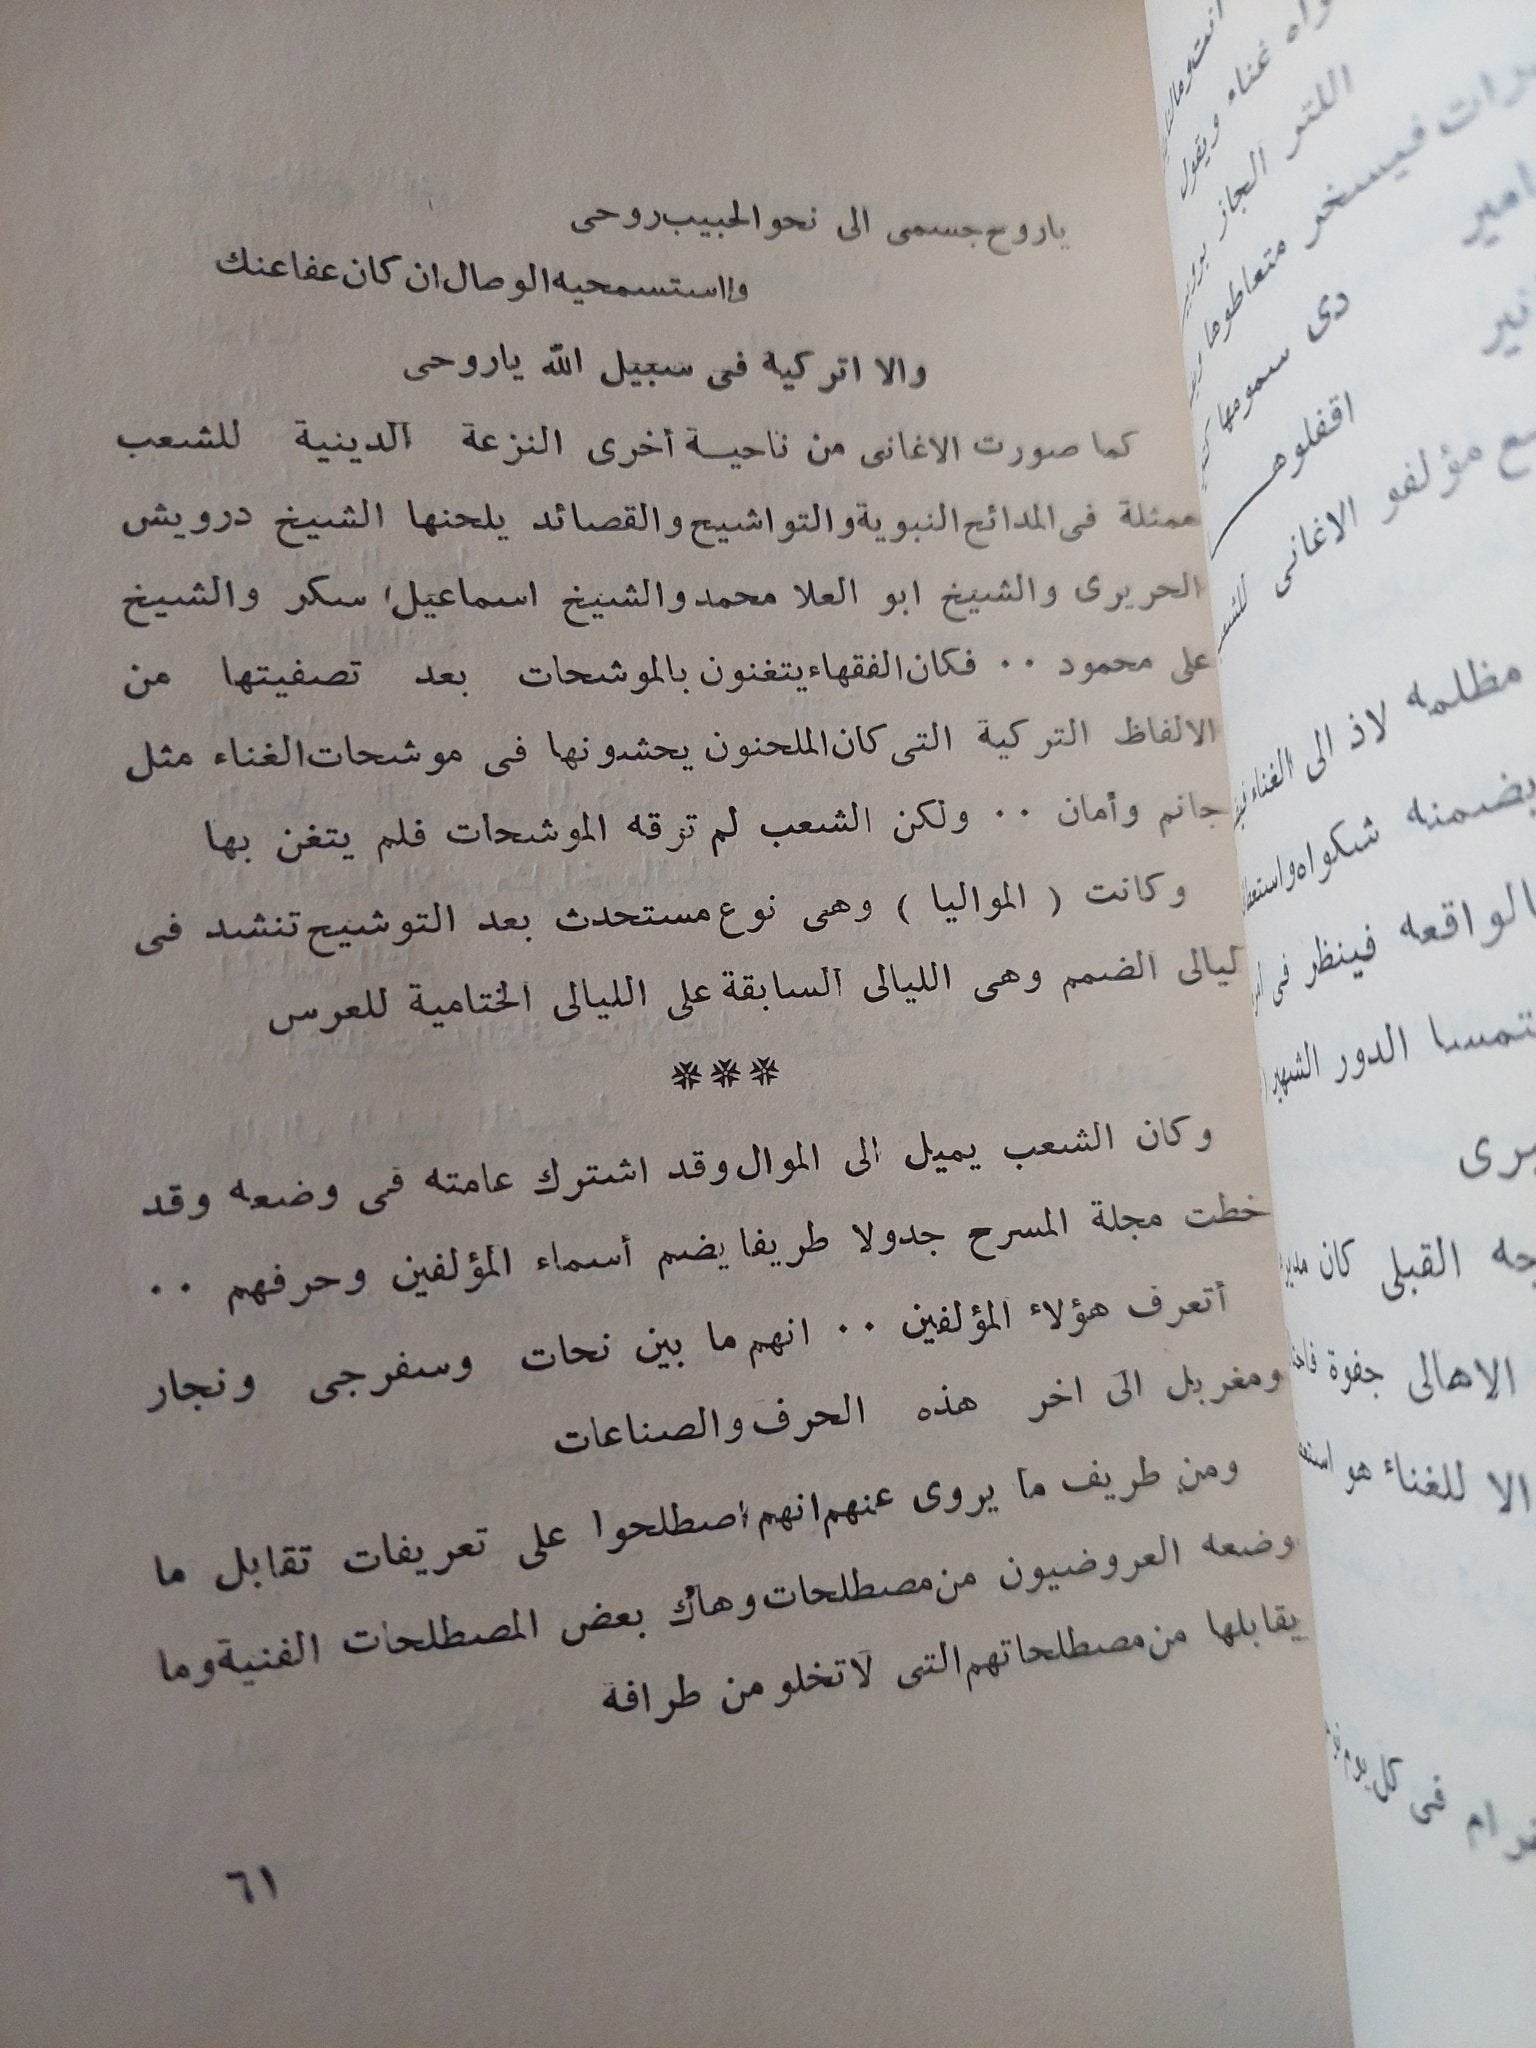 ياروح جسمى الى نحو الحبيب روحى
واستسمحيه الوصال ان كان عفا عنك
والا اتركية فى سبيل الله ياروحى
كما صورت الاغانى من ناحية أخرى النزعة الدينية للشعب
ممثلة فى المدائح النبوية والتواشيح والقصائد يلحنها الشيخ درويش
الحريرى والشيخ ابو العلا محمد والشيخ اسماعيل سكر والشيخ
على محمود ٠٠ فكان الفقهاء يتغنون بالموشحات بعد تصفيتها من
الالفاظ التركية التى كان الملحنون يحشدونها فى موشحات الغناء مثل
جانم وأمان ٠٠ ولكن الشعب لم ترقه الموشحات فلم يتغن بها
وكانت ( المواليا ) وهى نوع مستحدث بعد التوشيح تنشد فى
ليالى الضمم وهى الليالى السابقة على الليالى الختامية للعرس
***
وكان الشعب يميل الى الموال وقد اشترك عامته فى وضعه وقد
خطت مجلة المسرح جدولا طريفا يضم أسماء المؤلفين وحرفهم ٠٠
أتعرف هؤلاء المؤلفين ٠٠ انهم ما بين نحات وسفرجى ونجار
ومغربل الى اخر هذه الحرف والصناعات
ومن طريف ما يروى عنهم انهم اصطلحوا على تعريفات تقابل ما
وضعه العروضيون من مصطلحات وهاك بعض المصطلحات الفنية وما
يقابلها من مصطلحاتهم التى لاتخلو من طرافة
٦١
غناء ويقول
اللتر الجاز
فيسخر متعاطوها
دى سمومها
اقفلوهـ
مؤلفو الاغانى
مظلمه لاذ الى الغناء
يضمنه شكواه
الواقعه فينظر فى
الدور الشهير
القبلى كان
الاهالى جفوة
الا للغناء هو
فى كل يوم